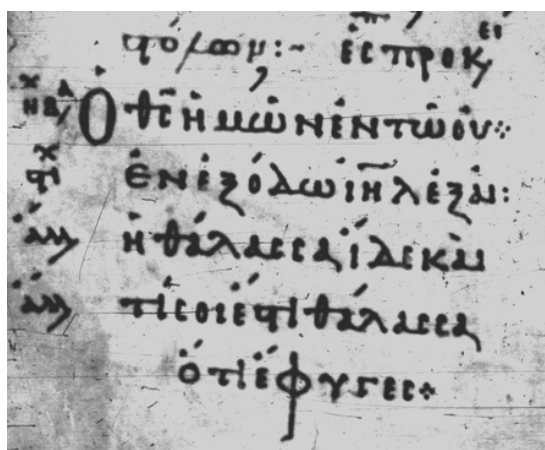 ἑσ προκει
Ὁ θς ἡμῶν ἐν τῶ οὐν:
στι ἐν ἐξόδω ιηλ ἐξ αι:
ἡ θάλασσα ἴδε καὶ
τί σοι ἐστὶ θάλασσα
ὅτι ἔφυγες